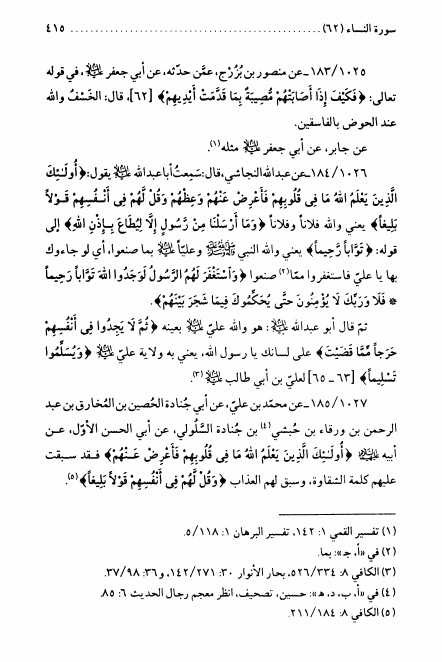 سورة النساء (٦٢) ........................................ ٤١٥
١٨٣/١٠٢٥ ـ عن منصور بن بُزُرْج، عمَّن حدّثه، عن أبي جعفر ﷺ، في قوله
تعالى: ﴿فَكَيْفَ إِذَا أَصَابَتْهُمْ مُّصِيبَةٌ بِمَا قَدَّمَتْ أَيْدِيهِمْ﴾ [٦٢]، قال: الخَسْفُ والله
عند الحوض بالفاسقين.
عن جابر، عن أبي جعفر ﷺ مثله(١).
١٨٤/١٠٢٦ ـ عن عبدالله النجاشي، قال: سَمِعتُ أباعبدالله ﷺ يقول: ﴿أُولَئِكَ
الَّذِينَ يَعْلَمُ اللهُ مَا فِى قُلُوبِهِمْ فَأَعْرِضْ عَنْهُمْ وَعِظْهُمْ وَقُل لَّهُمْ فِى أَنْـفُسِهِمْ قَـوْلاً
بَلِيغاً﴾ يعني والله فلاناً وفلاناً ﴿وَمَا أَرْسَلْنَا مِنْ رَسُولٍ إِلَّا لِيُطَاعَ بِـإِذْنِ اللهِ﴾ إلى
قوله: ﴿تَوَّاباً رَحِيماً﴾ يعني والله النبي ﷺ وعليّاً ﷺ بما صنعوا، أي لو جاءوك
بها يا عليّ فاستغفروا ممّا(٢) صنعوا ﴿وَاسْتَغْفَرَ لَهُمُ الرَّسُولُ لَوَجَدُوا اللهَ تَوَّاباً رَحِيماً
* فَلَا وَرَبِّكَ لَا يُؤْمِنُونَ حَتَّى يُحَكِّمُوكَ فِيمَا شَجَرَ بَيْنَهُمْ﴾.
ثمّ قال أبو عبدالله ﷺ: هو والله عليّ بعينه ﴿ثُمَّ لَا يَجِدُوا فِى أَنْفُسِهِمْ
حَرَجاً مِّمَّا قَضَيْتَ﴾ على لسانك يا رسول الله، يعني به ولاية عليّ ﷺ ﴿وَيُسَلِّمُوا
تَسْلِيماً﴾ [٦٣ ـ ٦٥] لعليّ بن أبي طالب ﷺ(٣).
١٨٥/١٠٢٧ ـ عن محمّد بن عليّ، عن أبي جُنادة الحُصين بن المُخارق بن عبد
الرحمن بن ورقاء بن حُبشي(٤) بن جُنادة السَّلُولي، عن أبي الحسن الأوّل، عـن
أبيه ﷺ ﴿أُولَـئِكَ الَّذِينَ يَعْلَمُ اللهُ مَا فِى قُلُوبِهِمْ فَأَعْرِضْ عَـنْهُمْ﴾ فـقد سـبقت
عليهم كلمة الشقاوة، وسبق لهم العذاب ﴿وَقُل لَّهُمْ فِى أَنْفُسِهِمْ قَوْلاً بَلِيغاً﴾(٥).
(١) تفسير القمي ١: ١٤٢، تفسير البرهان ١: ٥/١١٨.
(٢) في «أ، ج»: بما.
(٣) الكافي ٨: ٥٢٦/٣٣٤، بحار الأنوار ٣٠: ١٤٢/٢٧١، و٣٦: ٣٧/٩٨.
(٤) في «أ، ب، د، ه»: حسين، تصحيف، انظر معجم رجال الحديث ٦: ٨٥.
(٥) الكافي ٨: ٢١١/١٨٤.